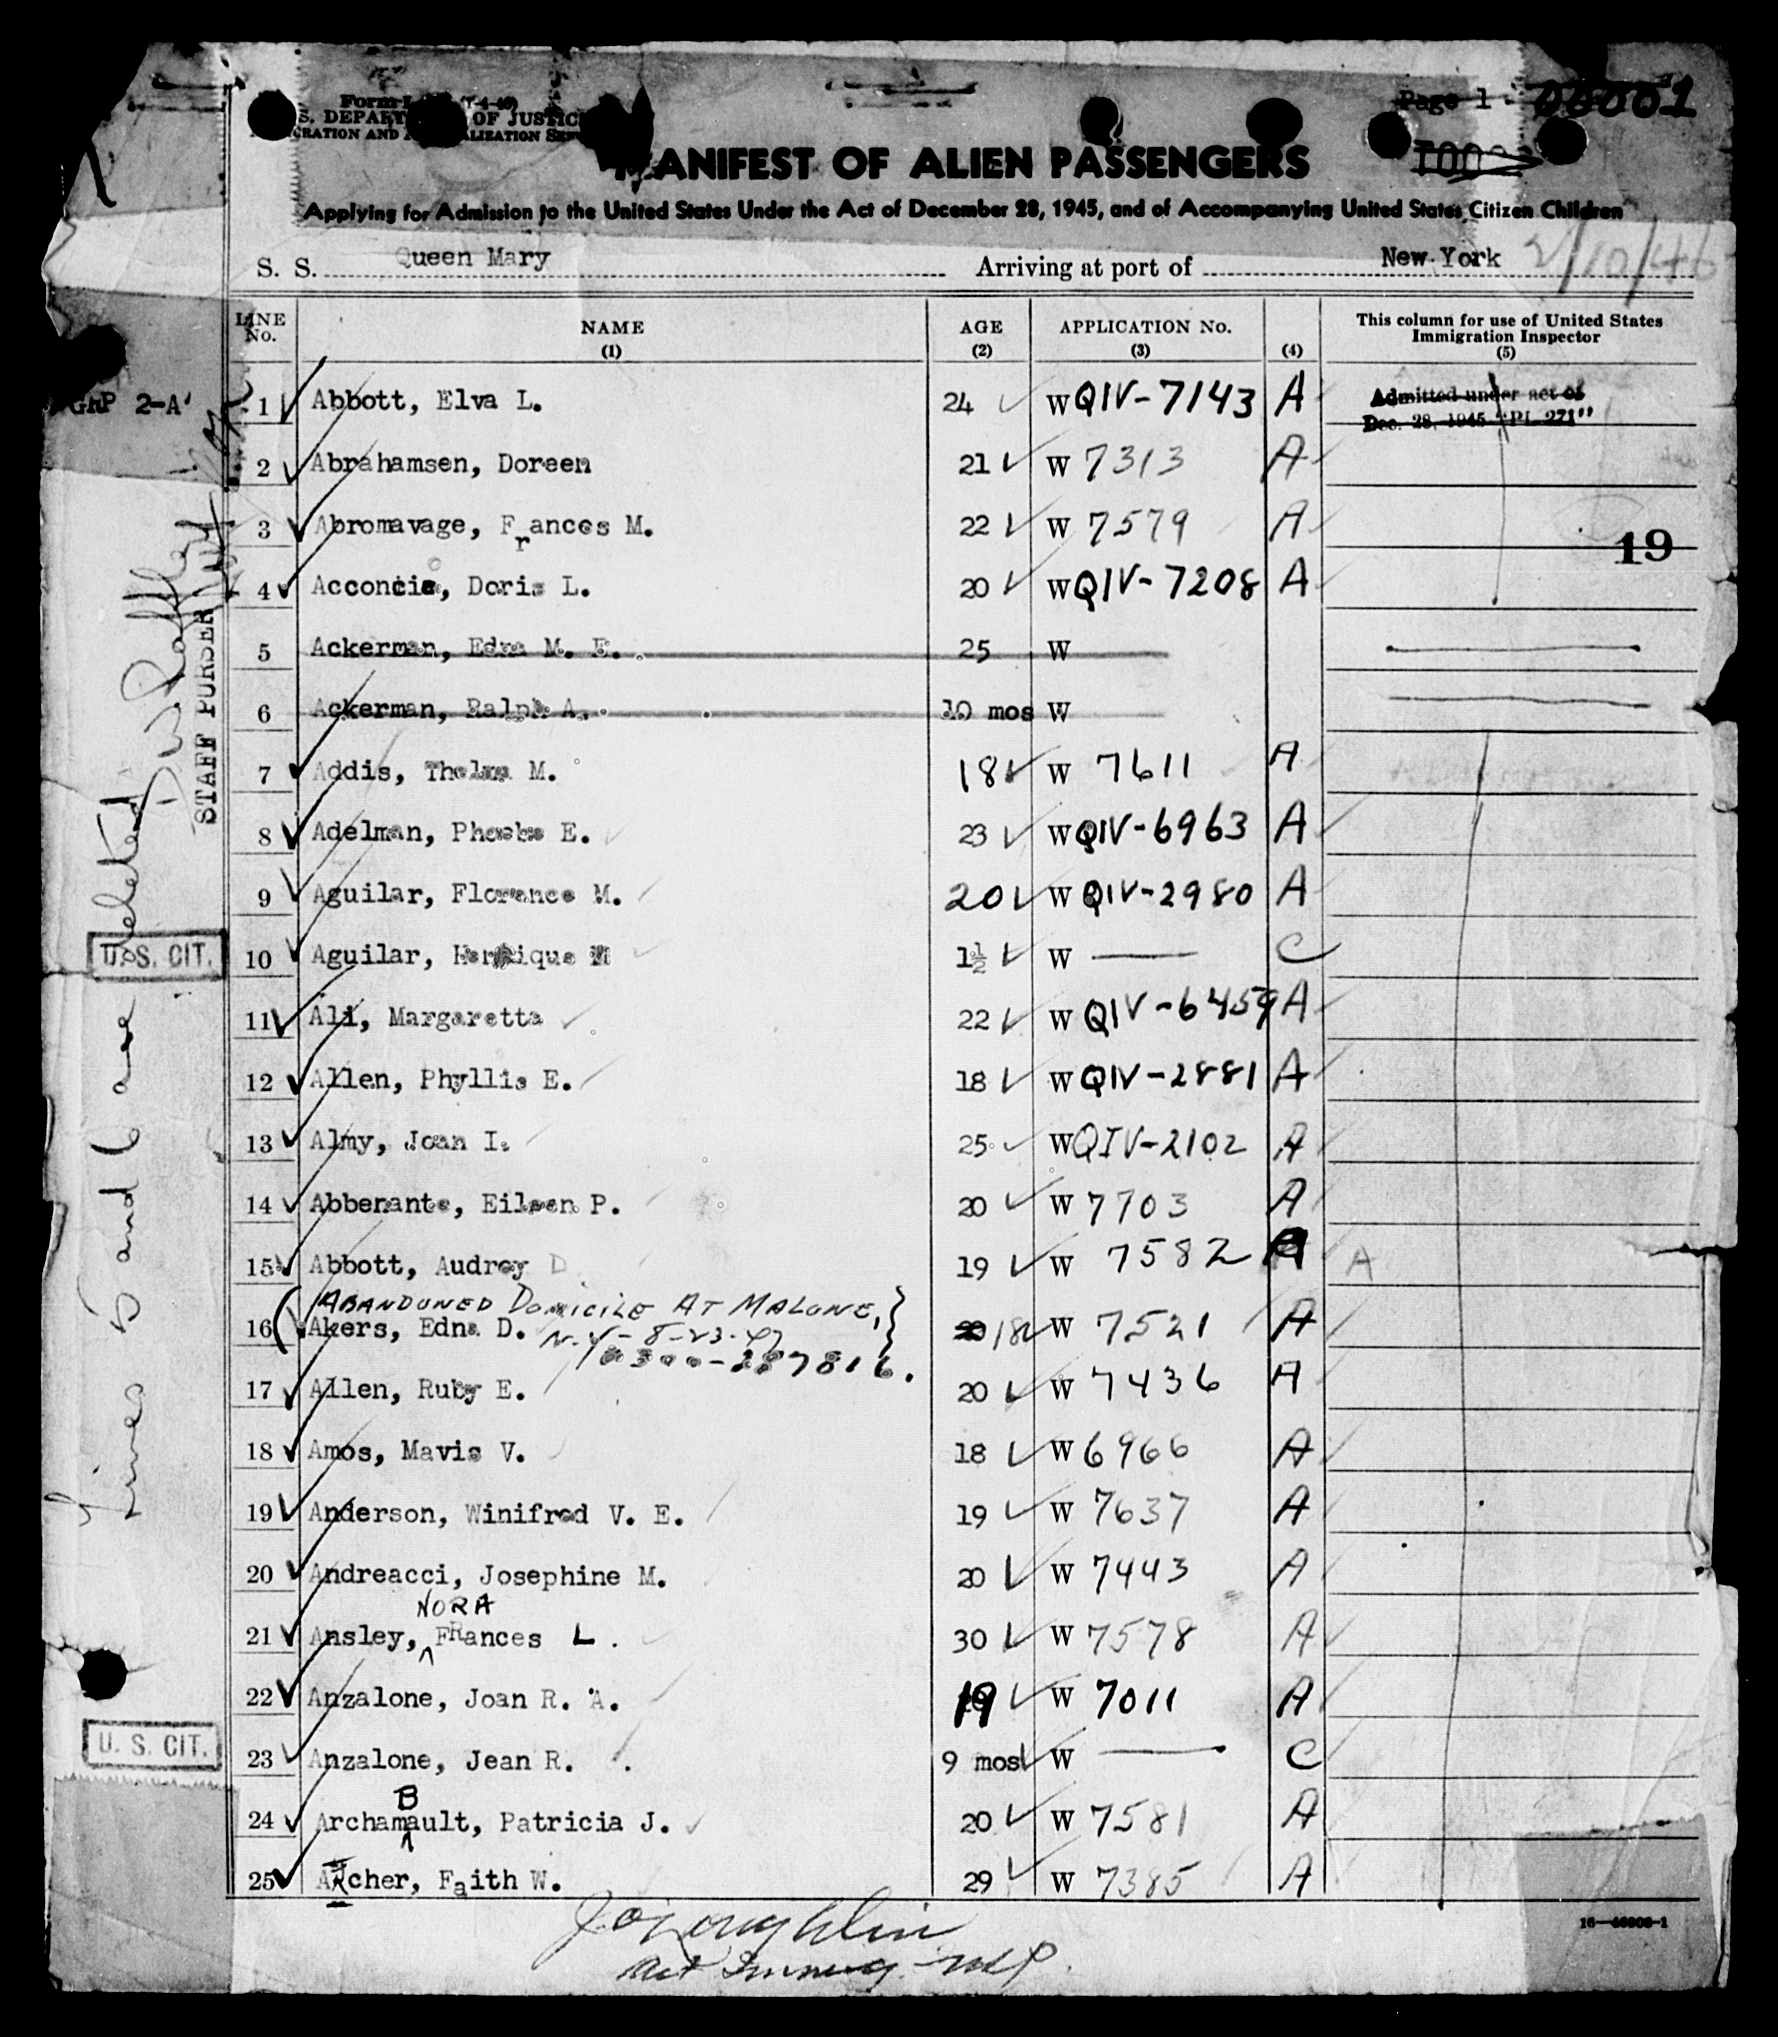 Page 1 00001
S. DEPART OF JUSTIC
MANIFEST OF ALIEN PASSENGERS
Applying for Admission to the United States Under the Act of December 28, 1945, and of Accompanying United States Citizen Children
S. S. Queen Mary Arriving at port of New York 2/10/46
LINE No. NAME (1) AGE (2) APPLICATION No. (3) (4) This column for use of United States Immigration Inspector (5)
GRP 2-A
1 Abbott, Elva L. 24 W QIV-7143 A Admitted under act of
Dec. 28, 1945 "PL 271"
2 Abrahamsen, Doreen 21 W 7313 A
3 Abromavage, Frances M. 22 W 7579 A
19
4 Acconcia, Doris L. 20 W QIV-7208 A
5 Ackerman, Edna M. E. 25 W
6 Ackerman, Ralph A. 10 mos W
7 Addis, Thelma M. 18 W 7611 A
8 Adelman, Phoebe E. 23 W QIV-6963 A
9 Aguilar, Florence M. 20 W QIV-2980 A
U.S. CIT.
10 Aguilar, 1½ W C
11 Ali, Margaretta 22 W QIV-6459 A
12 Allen, Phyllis E. 18 W QIV-2881 A
13 Almy, Joan I. 25 W QIV-2102 A
14 Abbenante, Eileen P. 20 W 7703 A
15 Abbott, Audrey D 19 W 7582 A A
ABANDONED DOMICILE AT MALONE,
16 Akers, Edna D. N.Y- 8-23-47 18 W 7521 A
0300-287816.
17 Allen, Ruby E. 20 W 7436 A
18 Amos, Mavis V. 18 W 6966 A
19 Anderson, Winifred V. E. 19 W 7637 A
20 Andreacci, Josephine M. 20 W 7443 A
NORA
21 Ansley, FRances L. 30 W 7578 A
22 Anzalone, Joan R. A. 19 W 7011 A
U. S. CIT.
23 Anzalone, Jean R. 9 mos W C
B
24 Archamault, Patricia J. 20 W 7581 A
25 Archer, Faith W. 29 W 7385 A
Lines 5 and 6 are deleted
STAFF PURSER